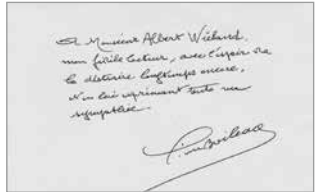 A Monsieur Albert Wieland,
mon fidèle lecteur, avec l'espoir de
le distraire longtemps encore,
et en lui exprimant toute ma
sympathie.